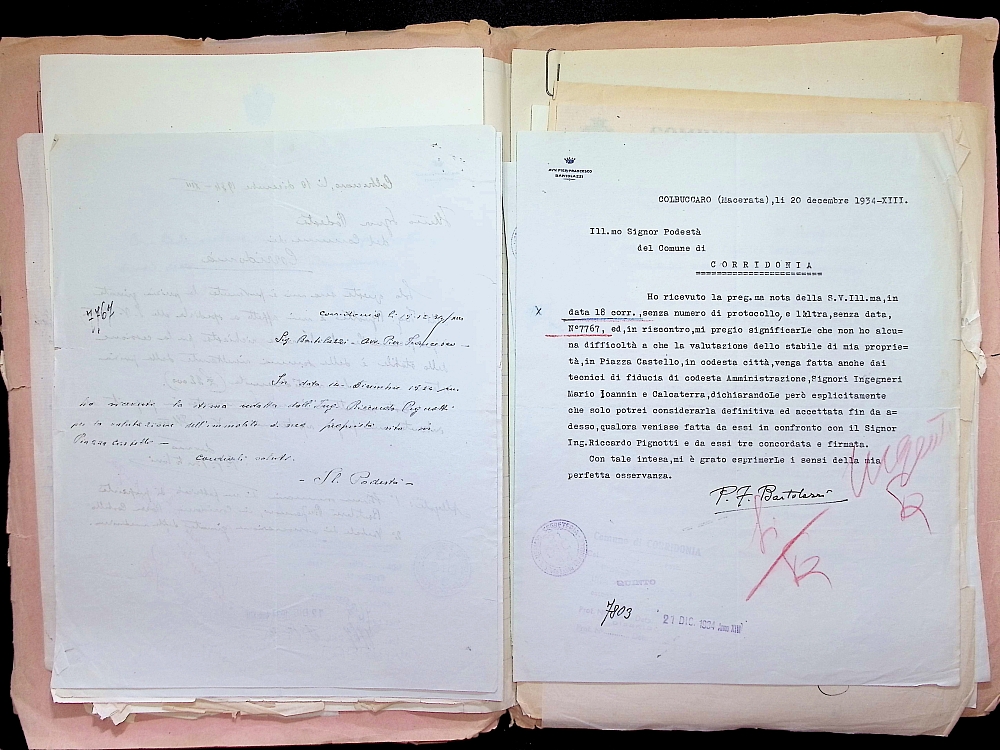 7767
Corridonia li 19-12-34/XIII
Sig. Bartolazzi - Avv. Pier Francesco -
In data 14 Dicembre 1934
ho ricevuto la stima redatta dall'Ing. Riccardo Pignotti
per la valutazione dell'immobile di sua proprietà sito in
Piazza Castello -
cordiali saluti.
- Il Podestà -
AVV. PIER FRANCESCO
BARTOLAZZI
COLBUCCARO (Macerata),li 20 decembre 1934-XIII.
Ill.mo Signor Podestà
del Comune di
C O R R I D O N I A
======================
Ho ricevuto la preg.ma nota della S.V.Ill.ma,in
x data 18 corr.,senza numero di protocollo, e l'àltra,senza data,
N°7767, ed,in riscontro,mi pregio significarLe che non ho alcu-
na difficoltà a che la valutazione dello stabile di mia proprie-
tà,in Piazza Castello,in codesta città,venga fatta anche dai
tecnici di fiducia di codesta Amministrazione,Signori Ingegneri
Mario Ioannin e Calcaterra,dichiarandoLe però esplicitamente
che solo potrei considerarla definitiva ed accettata fin da a-
desso,qualora venisse fatta da essi in confronto con il Signor
Ing.Riccardo Pignotti e da essi tre concordata e firmata.
Con tale intesa,mi è grato esprimerLe i sensi della mia
perfetta osservanza.
P. F. Bartolazzi
Urgente
Comune di CORRIDONIA
QUINTO
7803
21 DIC. 1934 Anno XIII